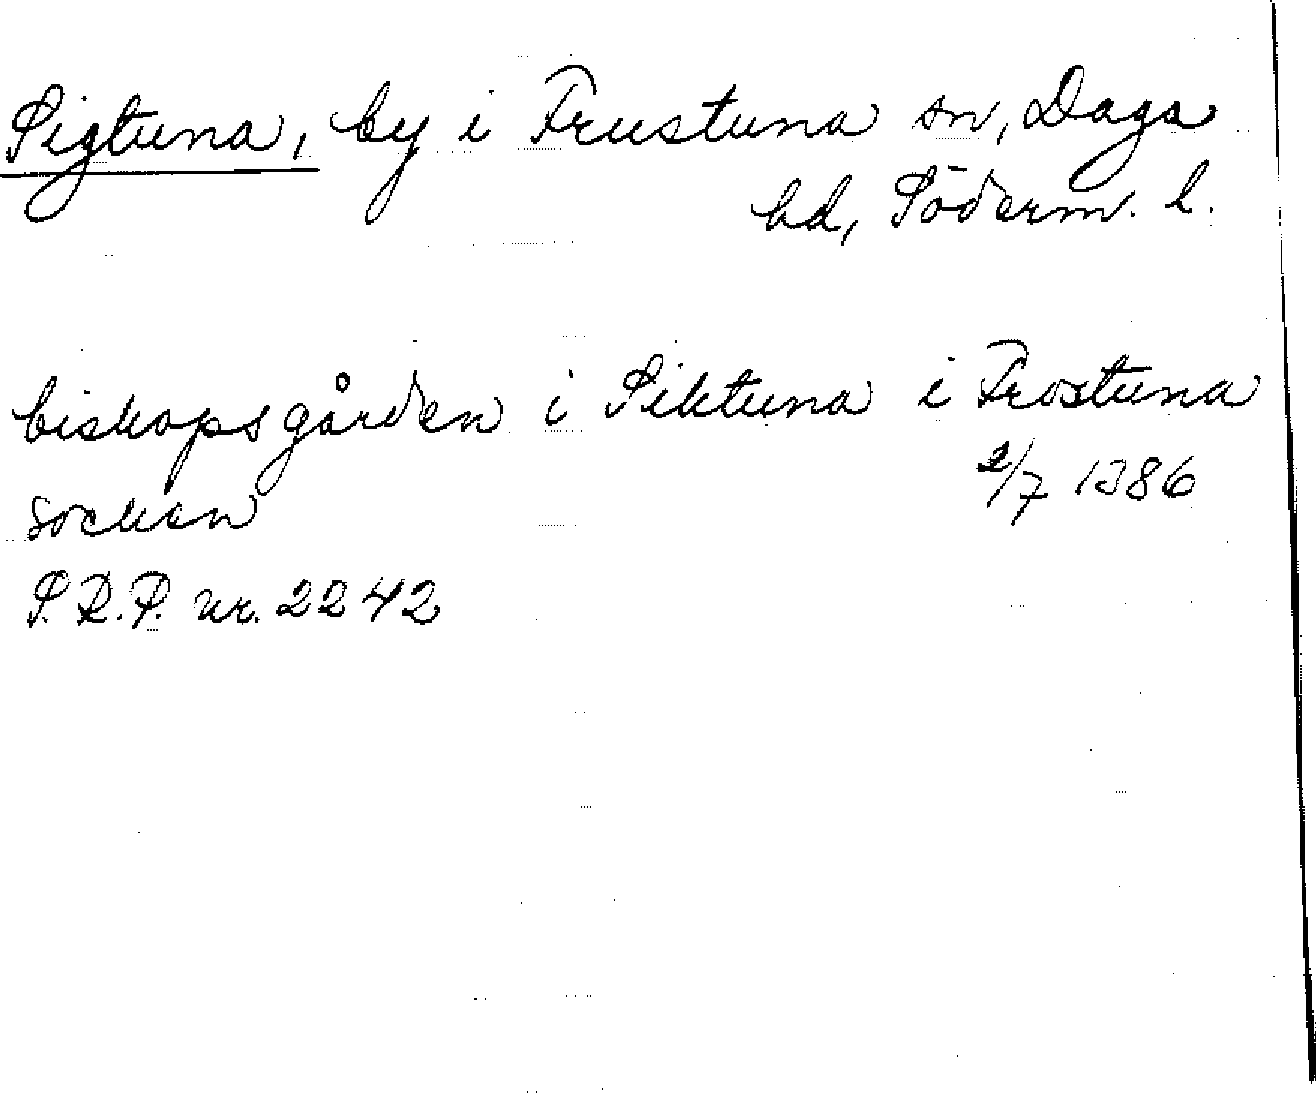 Sigtuna, by i Frustuna sn, Daga
hd, Söderm. l.
biskopsgården i Siktuna i Frostuna
2/7 1386
socken
S.R.P. nr. 2242